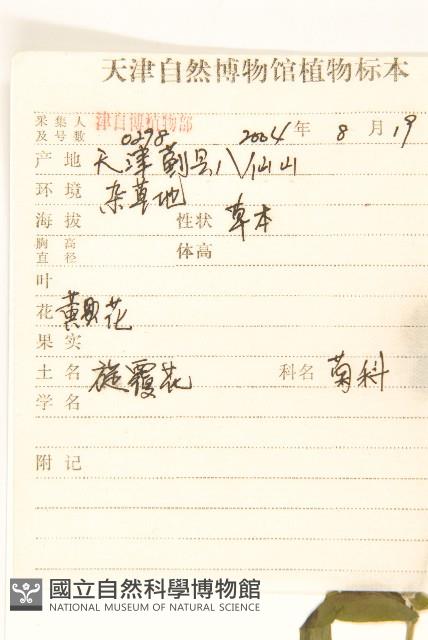 天津自然博物馆植物标本
采集人及号数 津自博植物部 0298 2004年8月19
产地 天津蓟县八仙山
环境 杂草地
海拔 性状 草本
胸高直径 体高
叶
花 黄色花
果实
土名 旋覆花 科名 菊科
学名
附记
國立自然科學博物館
NATIONAL MUSEUM OF NATURAL SCIENCE